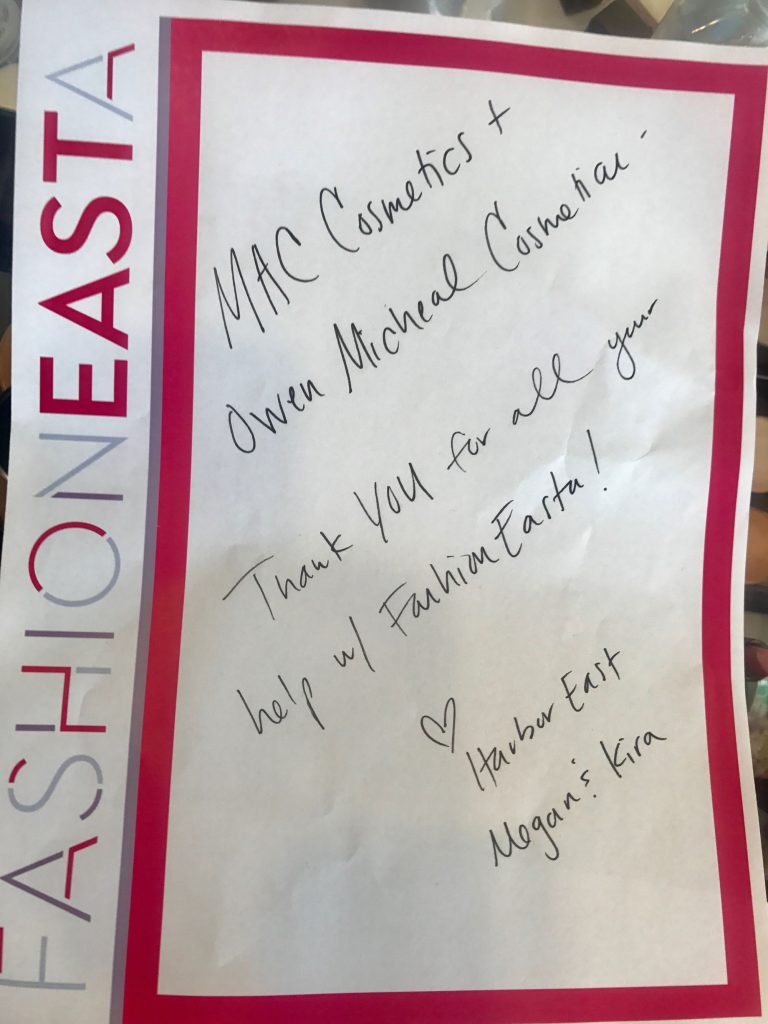 FASHIONEASTA
MAC Cosmetics +
Owen Micheal Cosmetics -
Thank YOU for all your
help w/ FashionEasta!
♡ Harbor East
Megan & Kira